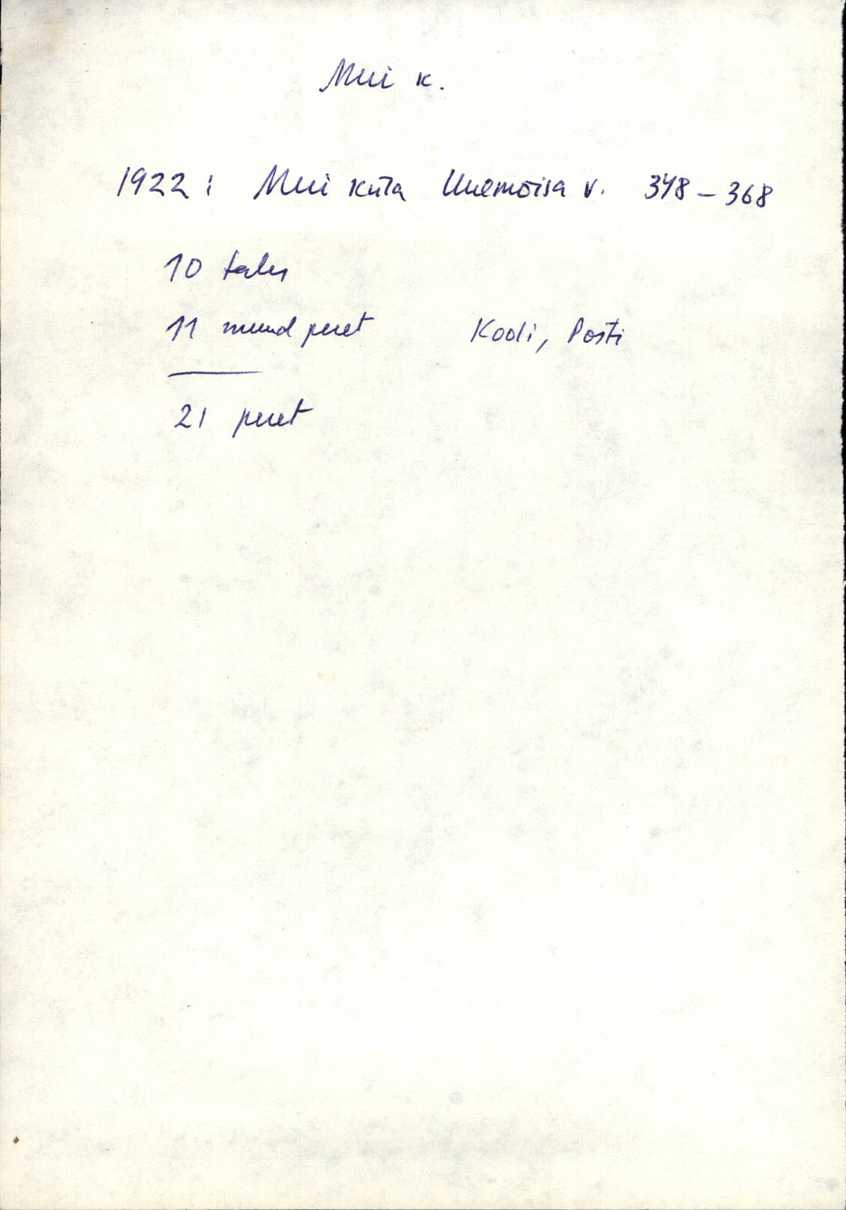 Mui k.
1922: Mui küla Uuemõisa v. 348 – 368
10 talu
11 muud peret Kooli, Posti
21 peret